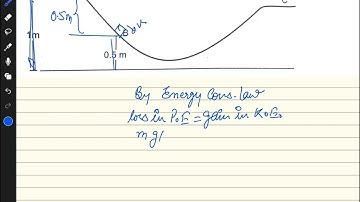 C
0.5m
1m
0.5 m
By Energy Cons. law
loss in P.E = gain in K.E.
mg